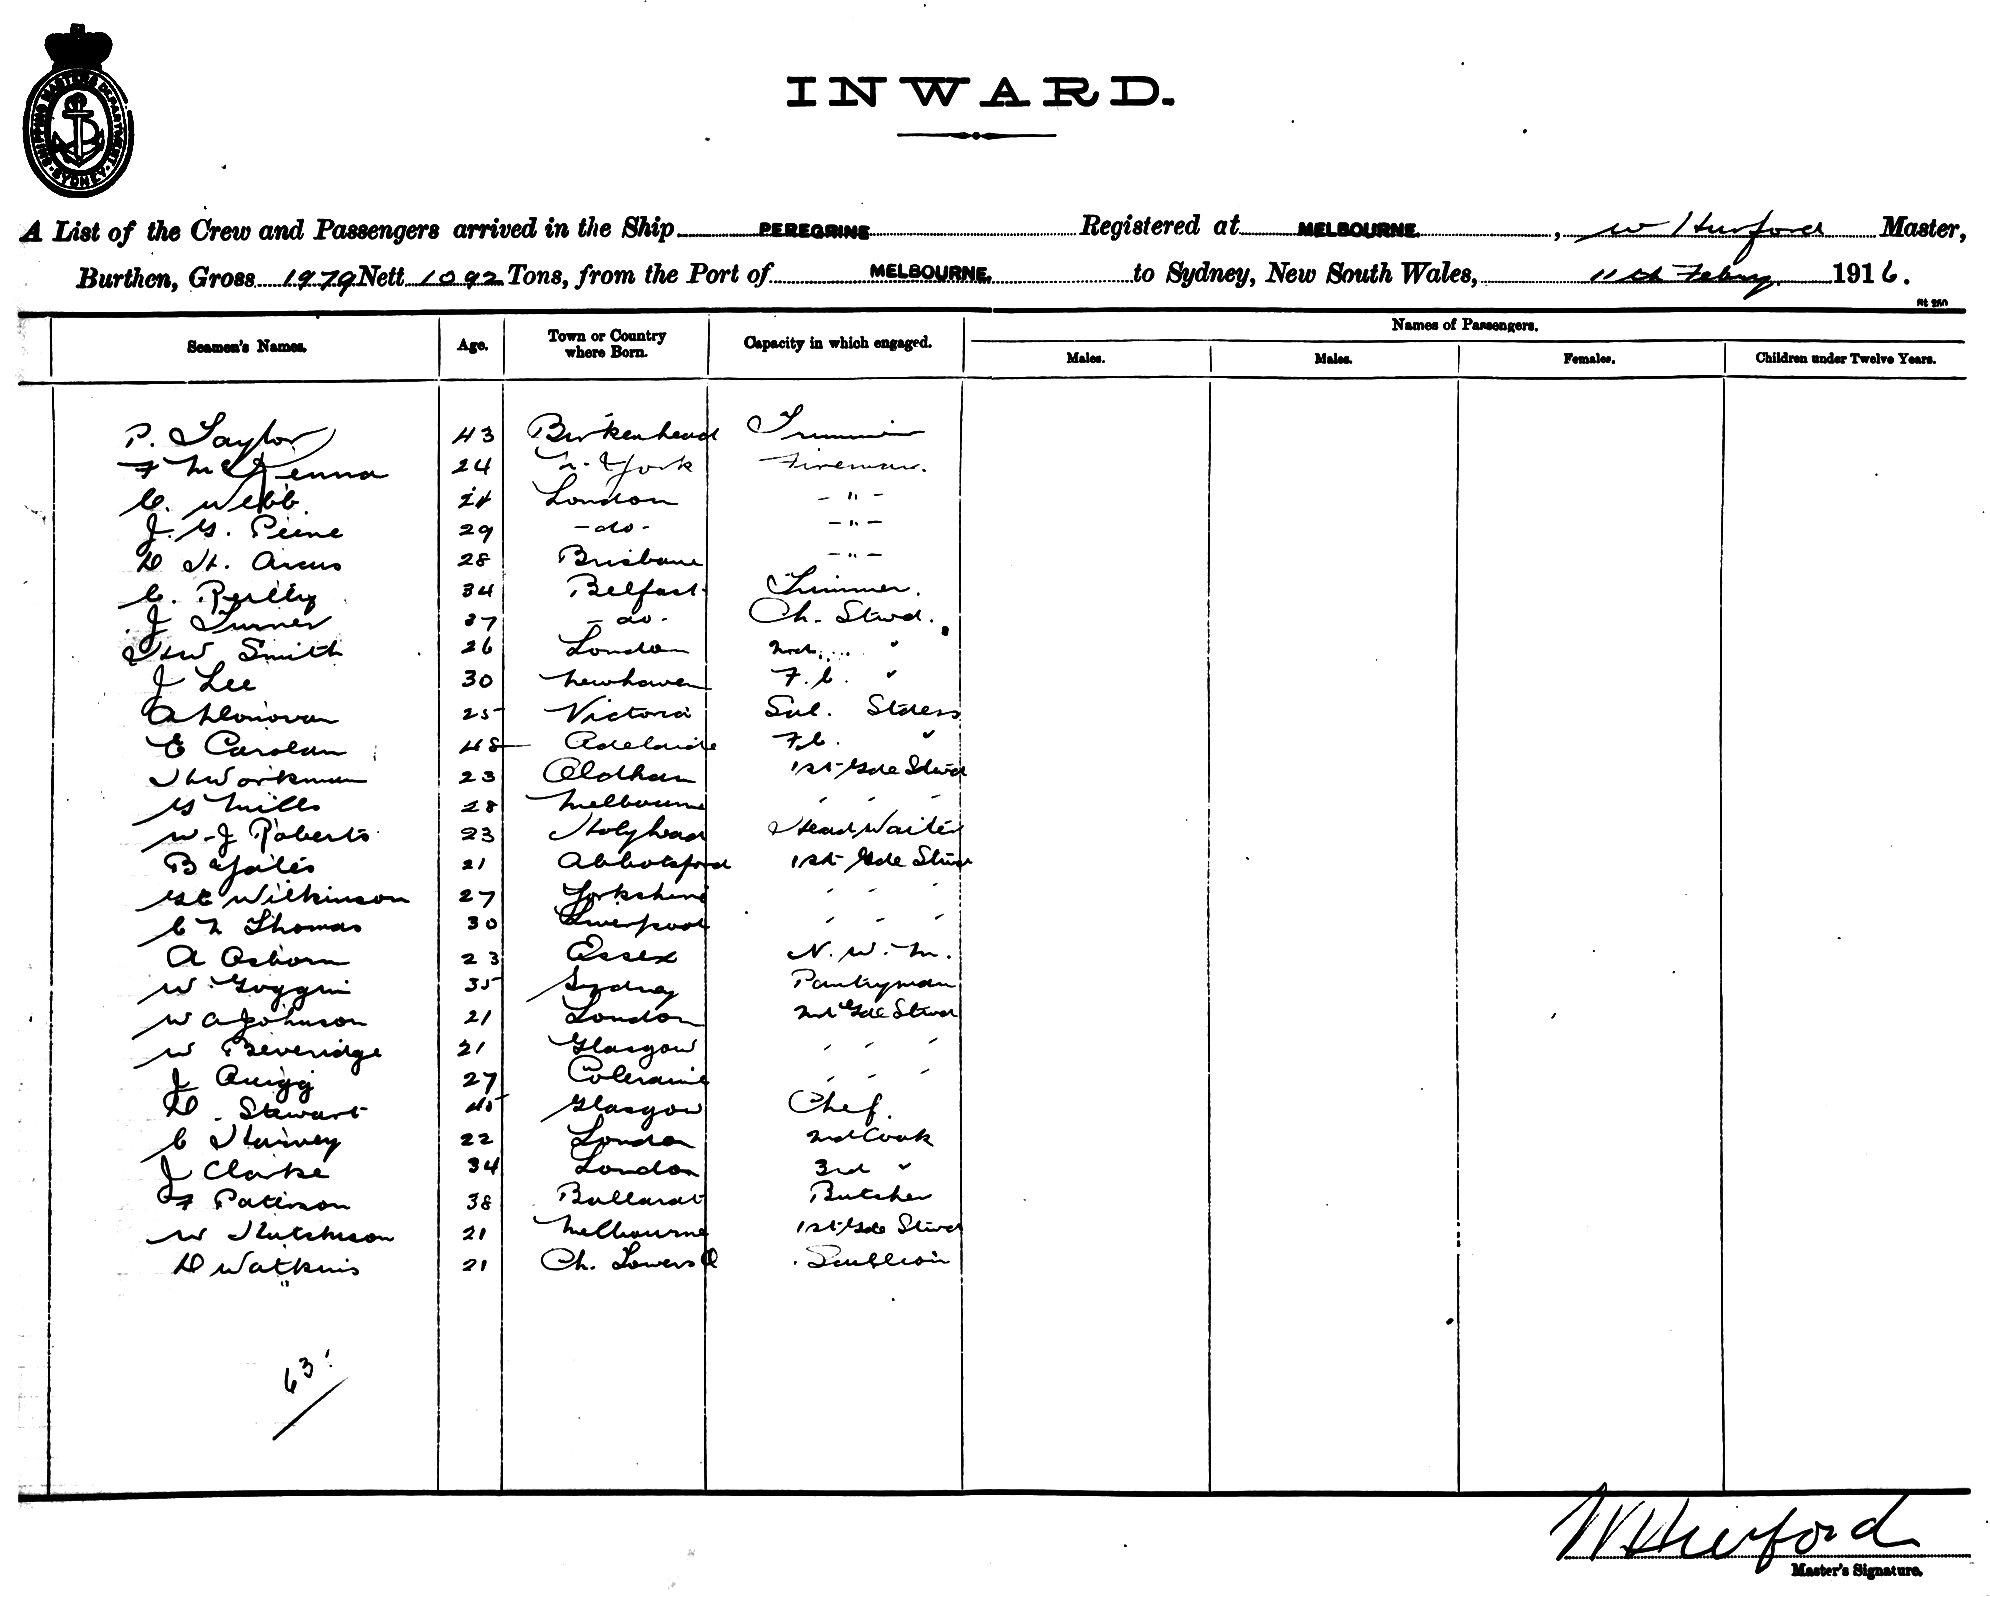 SHIPPING MASTERS DEPARTMENT SYDNEY
INWARD.
A List of the Crew and Passengers arrived in the Ship PEREGRINE Registered at MELBOURNE. , W Hurford Master,
Burthen, Gross 1979 Nett 1092 Tons, from the Port of MELBOURNE. to Sydney, New South Wales, 11th Febry. 1916.
Names of Passengers.
Seamen's Names. Age. Town or Country where Born. Capacity in which engaged. Males. Males. Females. Children under Twelve Years.
P. Taylor 43 Birkenhead Trimmer
F McKenna 24 N. York Fireman.
C. Webb. 24 London - " -
J. G. Peine 29 - do - - " -
D H. Arcus 28 Brisbane - " -
C. Reilly 34 Belfast Trimmer.
J Turner 37 - do - Ch. Stwd.
H W Smith 26 London 2nd "
J Lee 30 Newhaven F. C. "
A Donovan 25 Victoria Sal. Stdess
E Carolan 48 Adelaide F.C. "
H Workman 23 Oldham 1st Gde Stwd
G Mills 28 Melbourne " " "
W. J Roberts 23 Holyhead Head Waiter
B Yates 21 Abbotsford 1st Gde Stwd
G C Wilkinson 27 Yorkshire " " "
C N Thomas 30 Liverpool " " "
A Osborn 23 Essex N. W. M.
W Goggin 35 Sydney Pantryman
W A Johnson 21 London 2nd Gde Stwd
W Beveridge 21 Glasgow " " "
J Quigg 27 Coleraine " " "
D. Stewart 45 Glasgow Chef.
C Harvey 22 London 2nd Cook
J Clarke 34 London 3rd "
F Patinson 38 Ballarat Butcher
W Hutchison 21 Melbourne 1st Gde Stwd
D Watkins 21 Ch. Towers Q Scullion
63
W Hurford
Master's Signature.